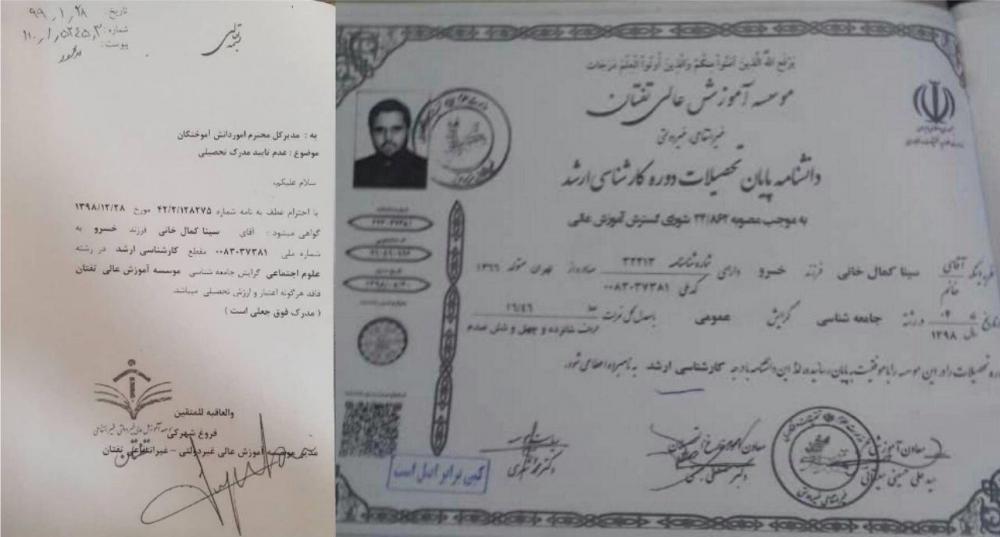 تاریخ: ۹۹,۱,۲۸
شماره:
پیوست: ندارد
بسمه تعالی
به : مدیرکل محترم اموردانش آموختگان
موضوع : عدم تایید مدرک تحصیلی
سلام علیکم،
با احترام عطف به نامه شماره ۴۲/۲/۱۲۸۲۷۵ مورخ ۱۳۹۸/۱۲/۲۸
گواهی میشود : آقای سینا کمال خانی فرزند خسرو به
شماره ملی ۰۰۸۳۰۳۷۳۸۱ مقطع کارشناسی ارشد در رشته
علوم اجتماعی گرایش جامعه شناسی موسسه آموزش عالی تفتان
فاقد هرگونه اعتبار و ارزش تحصیلی میباشد.
( مدرک فوق جعلی است )
والعاقبه للمتقین
فروغ شهرکی
موسسه آموزش عالی غیردولتی غیرانتفاعی
تفتان
آموزش عالی غیردولتی – غیرانتفاعی تفتان
یَرْفَعِ اللهُ الَّذینَ آمَنُوا مِنْکُمْ وَالَّذینَ اُوتُوا الْعِلْمَ دَرَجات
موسسه آموزش عالی تفتان
غیرانتفاعی، غیردولتی
دانشنامه پایان تحصیلات دوره کارشناسی ارشد
به موجب مصوبه ۲۲/۸۶۲ شورای گسترش آموزش عالی
آقای
خانم
سینا کمال خانی فرزند خسرو دارای شماره شناسنامه ۳۲۲۱۳ صادره از تهران متولد ۱۳۶۶
کد ملی ۰۰۸۳۰۳۷۳۸۱
۱۳۹۸ در رشته جامعه شناسی گرایش عمومی با معدل کل نمرات ۱۶/۴۶
شانزده و چهل و شش صدم
تحصیلات را در این موسسه را با موفقیت به پایان رسانیده، لذا این دانشنامه با درجه کارشناسی ارشد به نامبرده اعطا می شود.
معاون آموزشی
سید علی حسینی
رئیس موسسه
کپی برابر اصل است